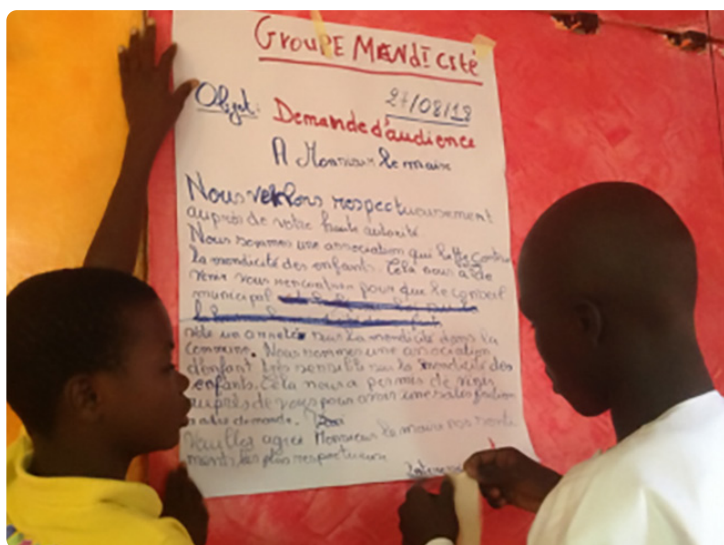 GROUPE MENDICITé
27/08/18
Objet: Demande d'audience
A Monsieur le maire
Nous venons respectueusement
auprès de votre haute autorité
Nous sommes une association qui lutte contre
la mendicité des enfants. Cela nous a
venir vous rencontrer pour que le conseil
municipal
vote un arreté sur la mendicité dans la
commune. Nous sommes une association
d'enfant très sensible sur la mendicité des
enfants. Cela nous a permis de venir
auprès de vous pour avoir une satisfaction
notre demande.
Veuillez agréer Monsieur le maire nos
les plus respectueux